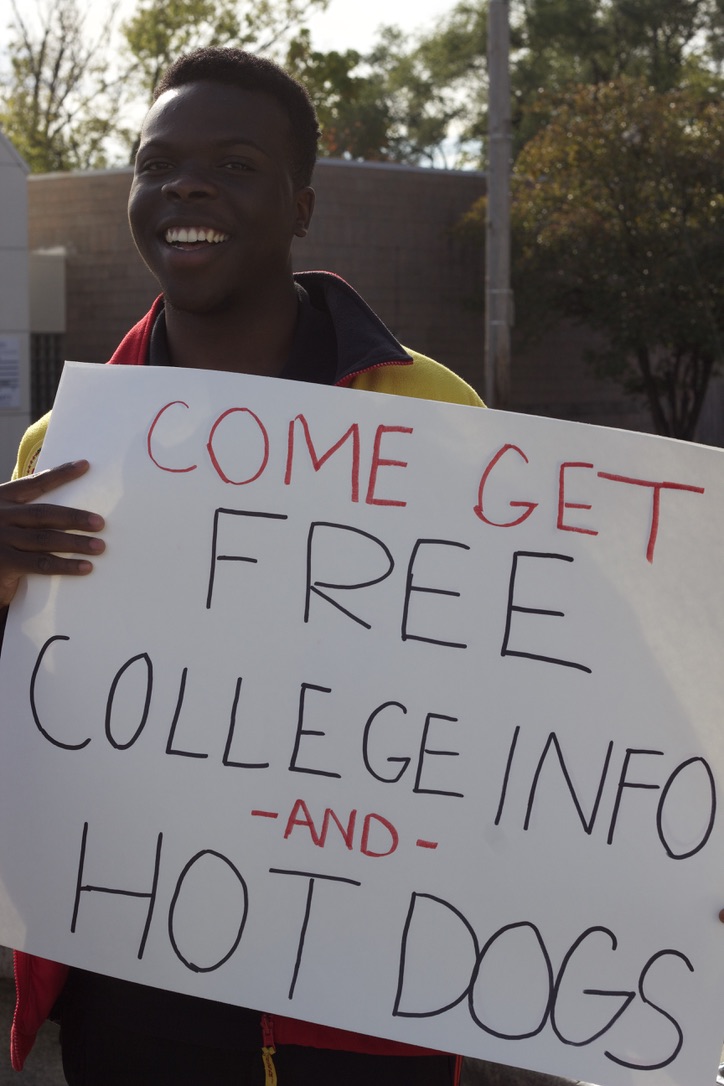 COME GET
FREE
COLLEGE INFO
-AND-
HOT DOGS